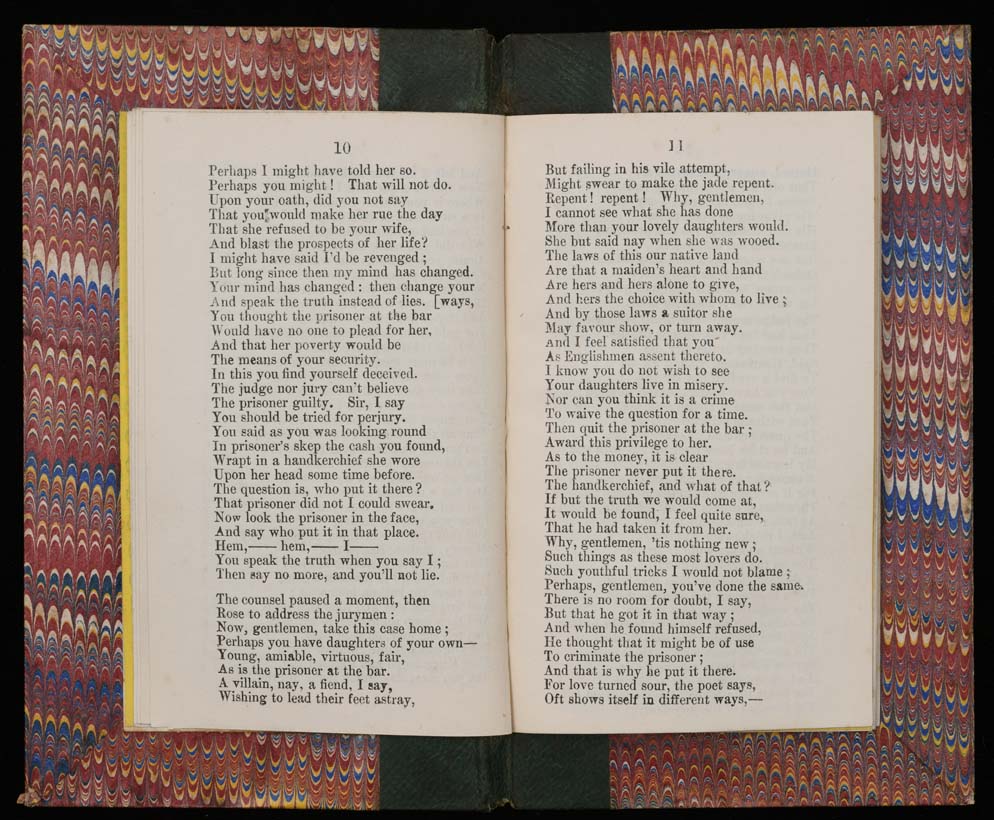 10
Perhaps I might have told her so.
Perhaps you might! That will not do.
Upon your oath, did you not say
That you would make her rue the day
That she refused to be your wife,
And blast the prospects of her life?
I might have said I'd be revenged;
But long since then my mind has changed.
Your mind has changed: then change your
And speak the truth instead of lies. [ways,
You thought the prisoner at the bar
Would have no one to plead for her,
And that her poverty would be
The means of your security.
In this you find yourself deceived.
The judge nor jury can't believe
The prisoner guilty. Sir, I say
You should be tried for perjury.
You said as you was looking round
In prisoner's skep the cash you found,
Wrapt in a handkerchief she wore
Upon her head some time before.
The question is, who put it there?
That prisoner did not I could swear.
Now look the prisoner in the face,
And say who put it in that place.
Hem,—— hem,—— I——
You speak the truth when you say I;
Then say no more, and you'll not lie.
The counsel paused a moment, then
Rose to address the jurymen:
Now, gentlemen, take this case home;
Perhaps you have daughters of your own—
Young, amiable, virtuous, fair,
As is the prisoner at the bar.
A villain, nay, a fiend, I say,
Wishing to lead their feet astray,
11
But failing in his vile attempt,
Might swear to make the jade repent.
Repent! repent! Why, gentlemen,
I cannot see what she has done
More than your lovely daughters would.
She but said nay when she was wooed.
The laws of this our native land
Are that a maiden's heart and hand
Are hers and hers alone to give,
And hers the choice with whom to live;
And by those laws a suitor she
May favour show, or turn away.
And I feel satisfied that you
As Englishmen assent thereto.
I know you do not wish to see
Your daughters live in misery.
Nor can you think it is a crime
To waive the question for a time.
Then quit the prisoner at the bar;
Award this privilege to her.
As to the money, it is clear
The prisoner never put it there.
The handkerchief, and what of that?
If but the truth we would come at,
It would be found, I feel quite sure,
That he had taken it from her.
Why, gentlemen, 'tis nothing new;
Such things as these most lovers do.
Such youthful tricks I would not blame;
Perhaps, gentlemen, you've done the same.
There is no room for doubt, I say,
But that he got it in that way;
And when he found himself refused,
He thought that it might be of use
To criminate the prisoner;
And that is why he put it there.
For love turned sour, the poet says,
Oft shows itself in different ways,—